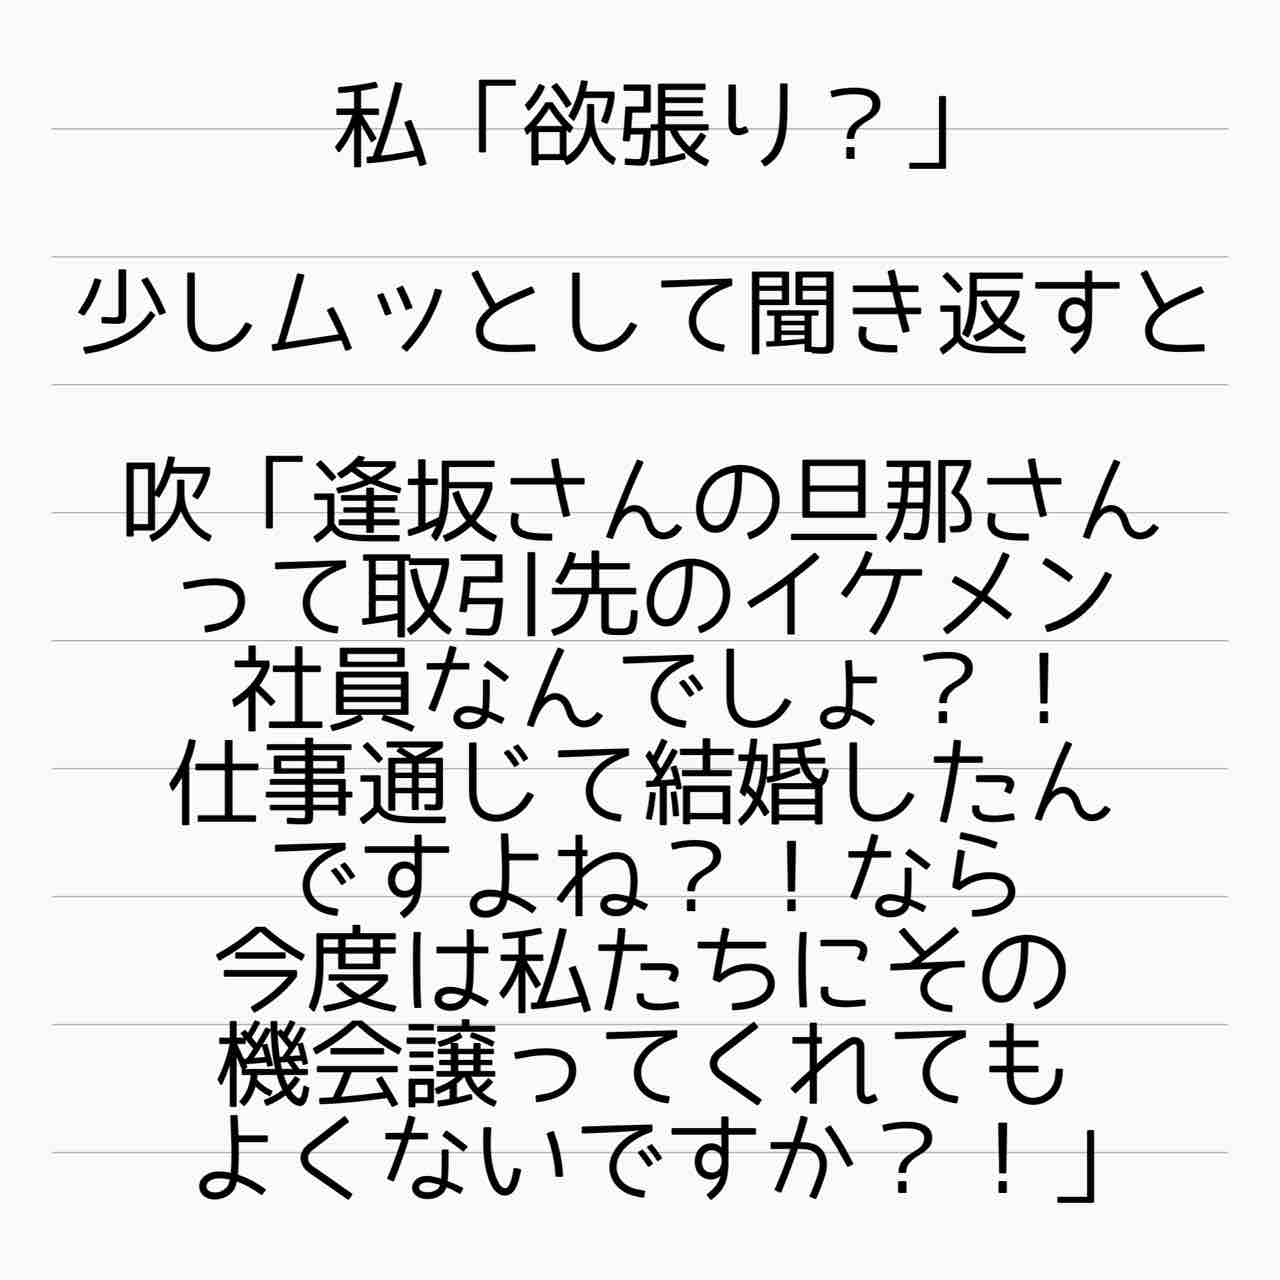 私「欲張り？」
少しムッとして聞き返すと
吹「逢坂さんの旦那さん
って取引先のイケメン
社員なんでしょ？！
仕事通じて結婚したん
ですよね？！なら
今度は私たちにその
機会譲ってくれても
よくないですか？！」